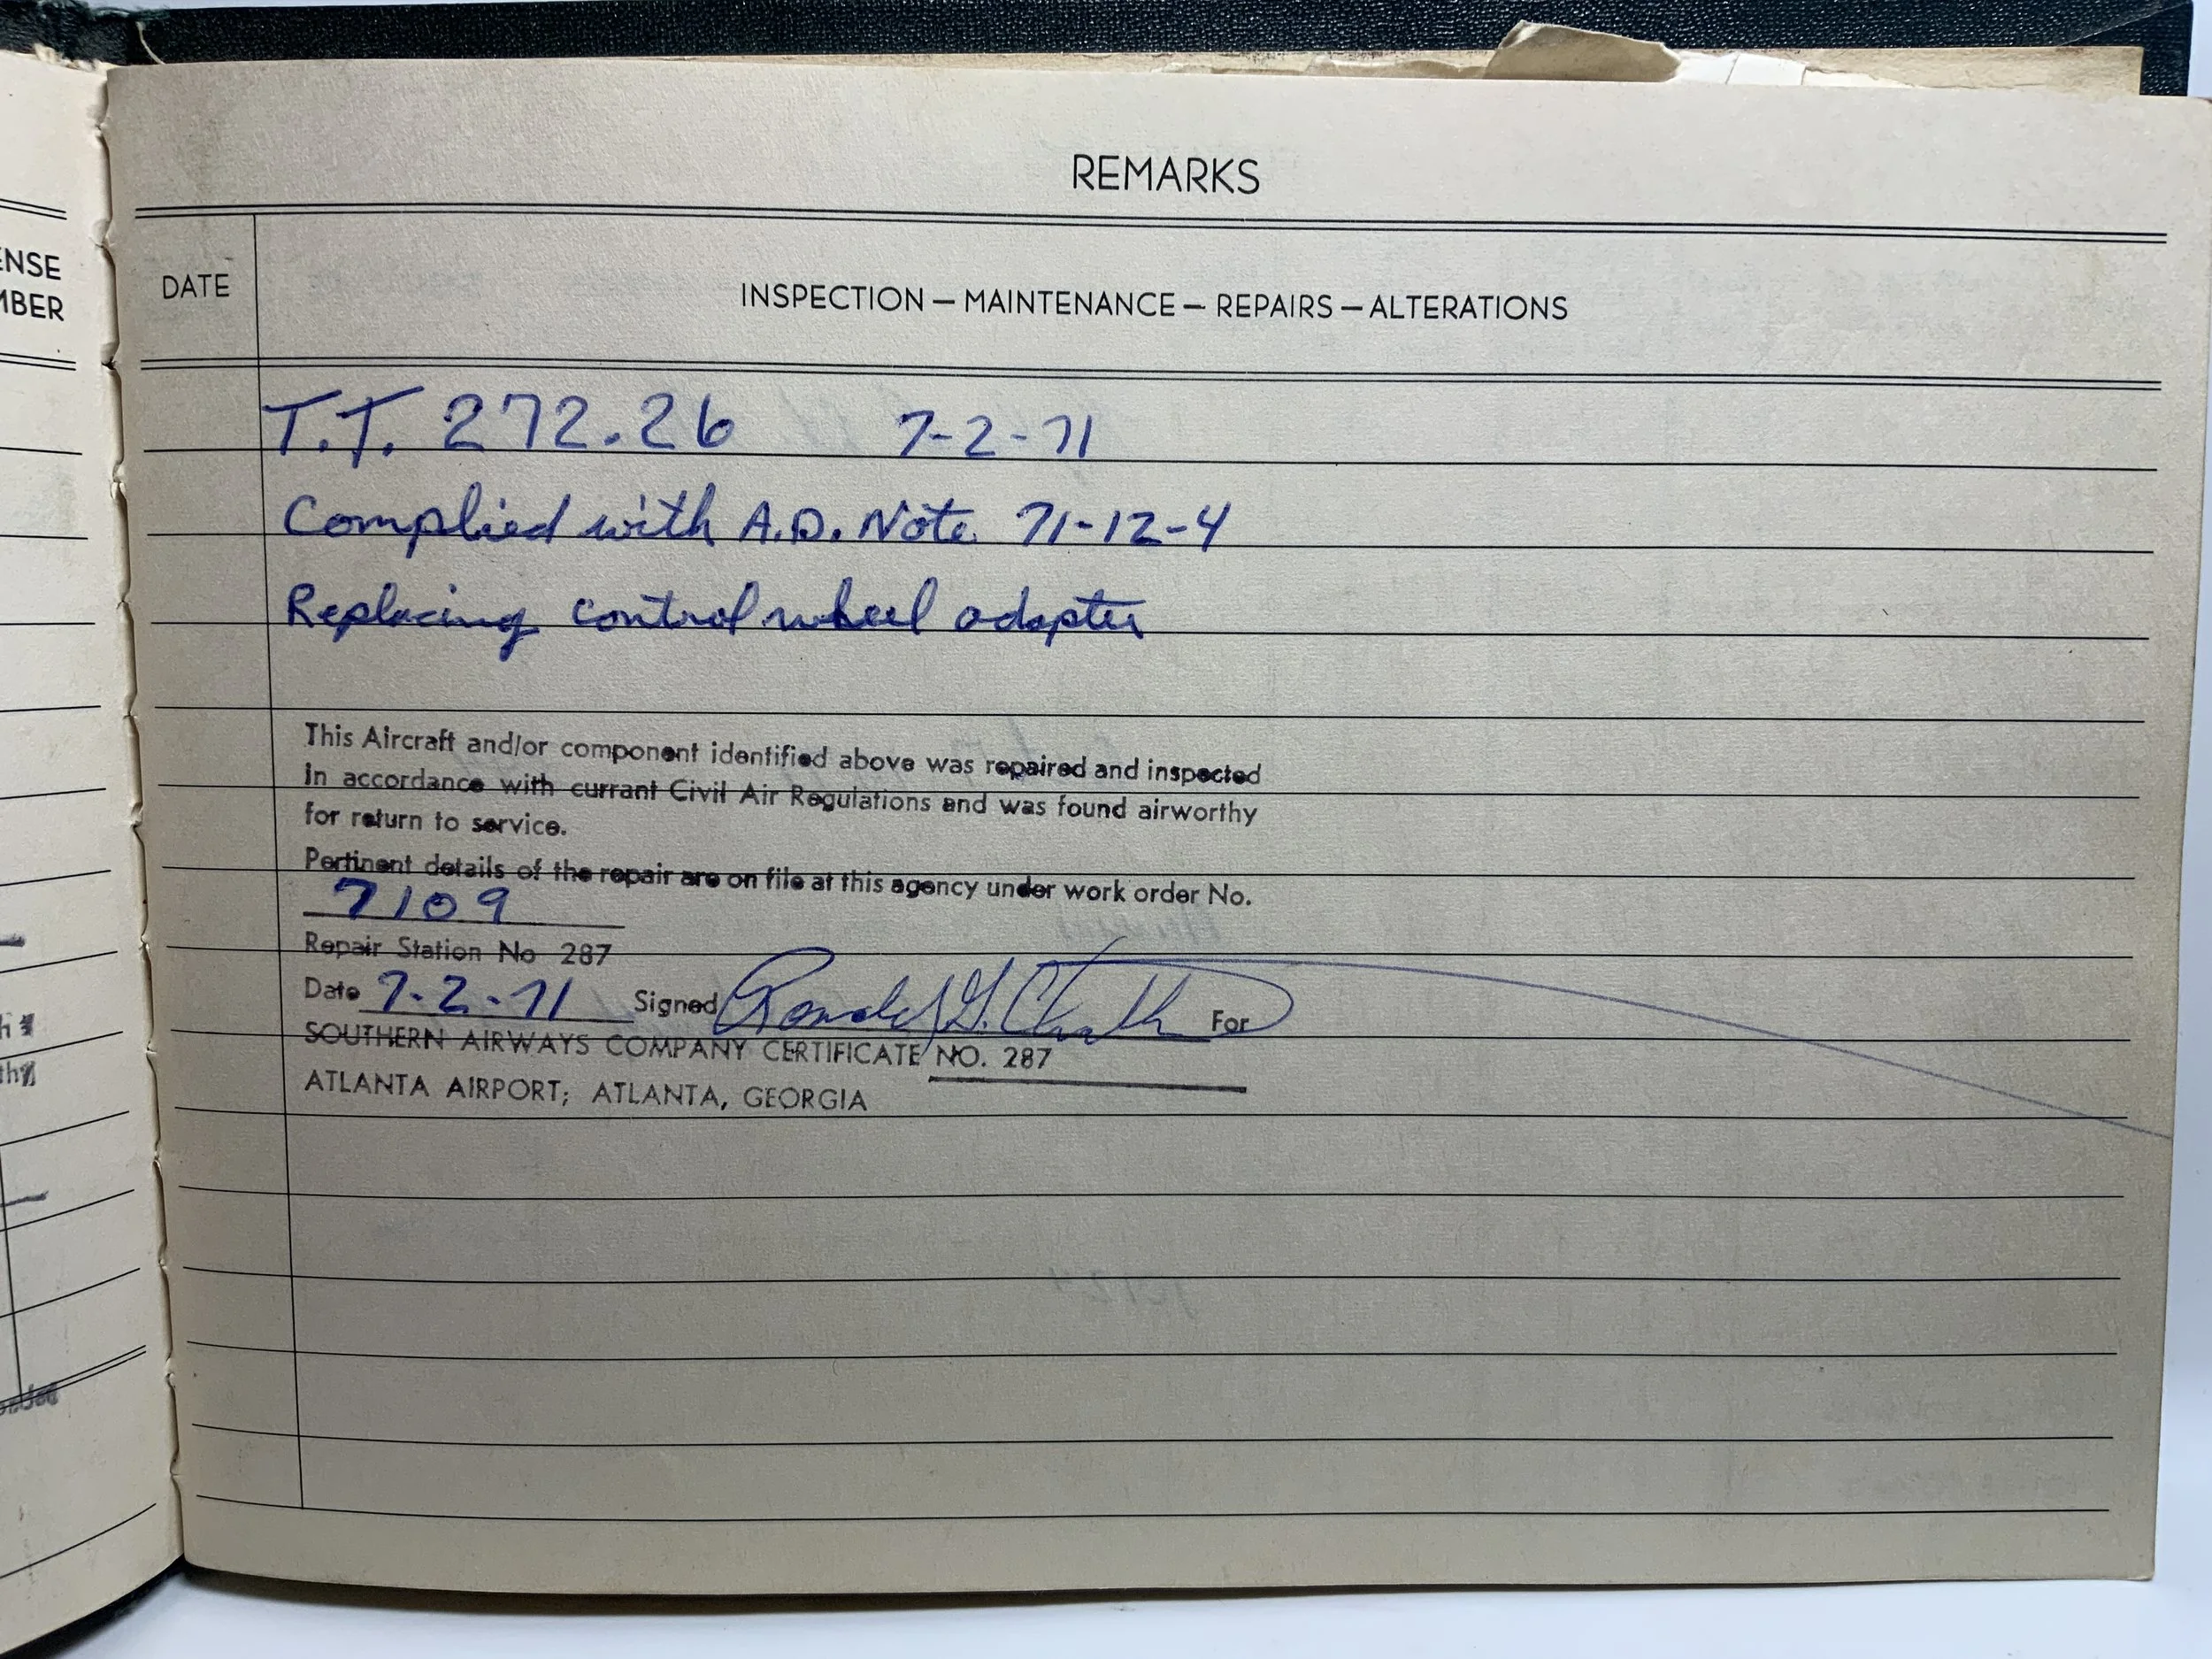 ENSE
MBER
REMARKS
DATE
INSPECTION — MAINTENANCE — REPAIRS — ALTERATIONS
T.T. 272.26 7-2-71
Complied with A.D. Note 71-12-4
Replacing control wheel adapter
This Aircraft and/or component identified above was repaired and inspected
in accordance with currant Civil Air Regulations and was found airworthy
for return to service.
Pertinent details of the repair are on file at this agency under work order No.
7109
Repair Station No 287
Date 7-2-71 Signed Ronald G. For
SOUTHERN AIRWAYS COMPANY CERTIFICATE NO. 287
ATLANTA AIRPORT; ATLANTA, GEORGIA